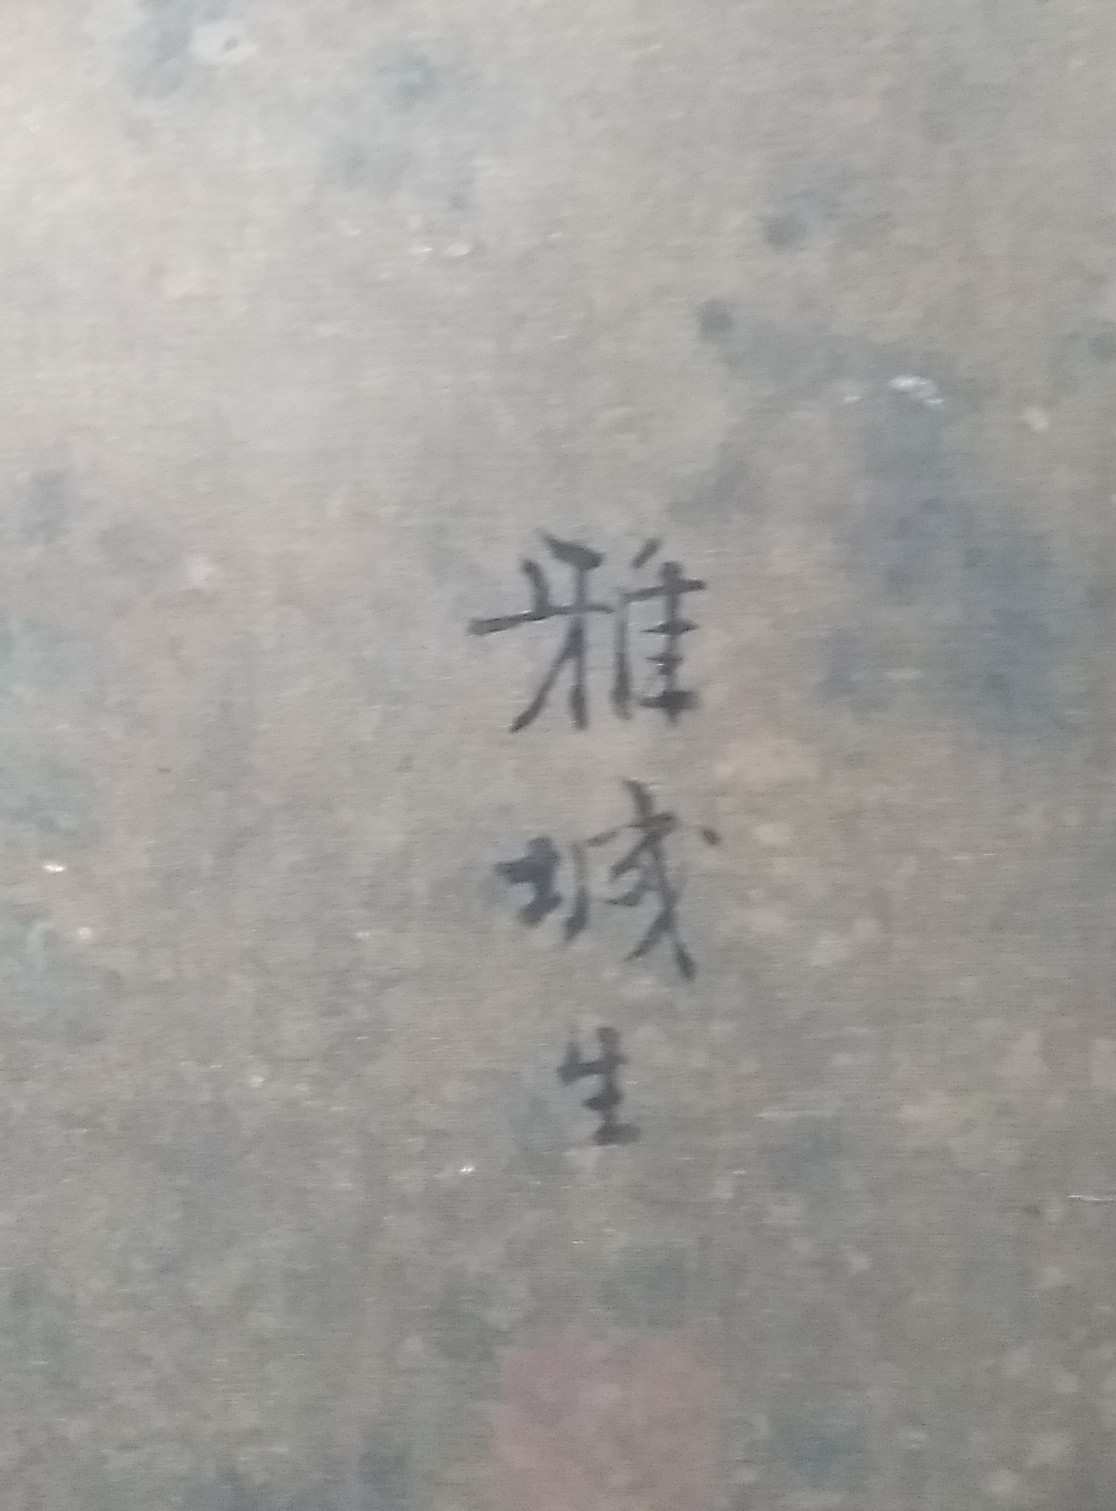 雅城生